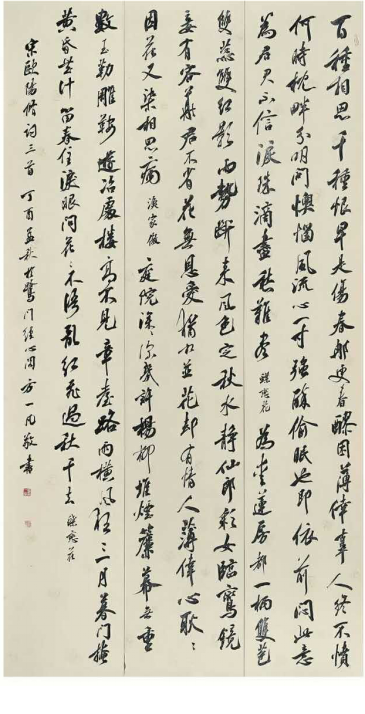 百種相思千種恨早是傷春那更春醪困薄倖辜人終不憤
何時枕畔分明問懊惱風流心一寸強醉偷眠也即依前悶此意
為君君不信淚珠滴盡愁難盡 蝶戀花 為愛蓮房都一柄雙苞
雙蕊雙紅影雨勢斷來風色定秋水靜仙郎彩女臨鸞鏡
妾有容華君不省花無恩愛猶相並花却有情人薄倖心耿〻
因花又染相思病 漁家傲 庭院深〻深幾許楊柳堆煙簾幕無重
數玉勒雕鞍遊冶處樓高不見章臺路雨橫風狂三月暮門掩
黃昏無計留春住淚眼問花〻不語亂紅飛過秋千去 蝶戀花
宋歐陽修詞三首 丁酉孟秋於鷺門經心閣方一凡敬書